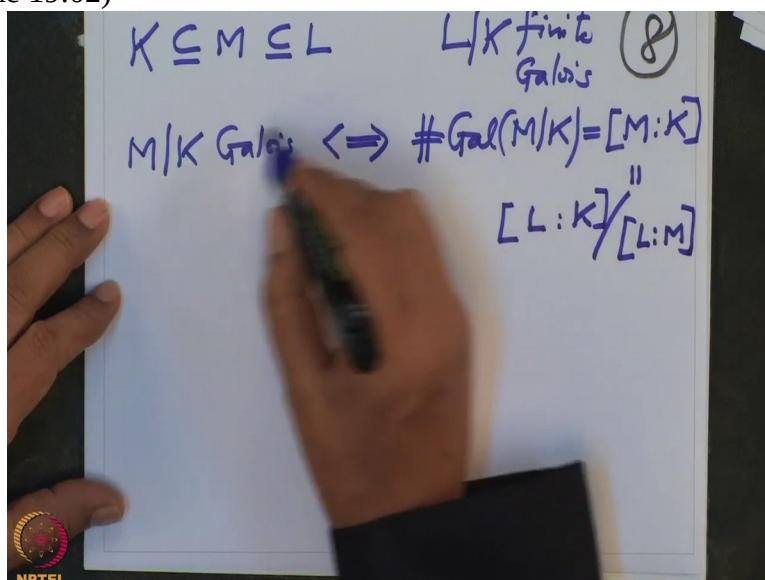 e 15:02)
K ⊆ M ⊆ L L|K finite 8
Galois
M|K Galois <=> #Gal(M|K)=[M:K]
||
[L:K]/[L:M]
NPTEL